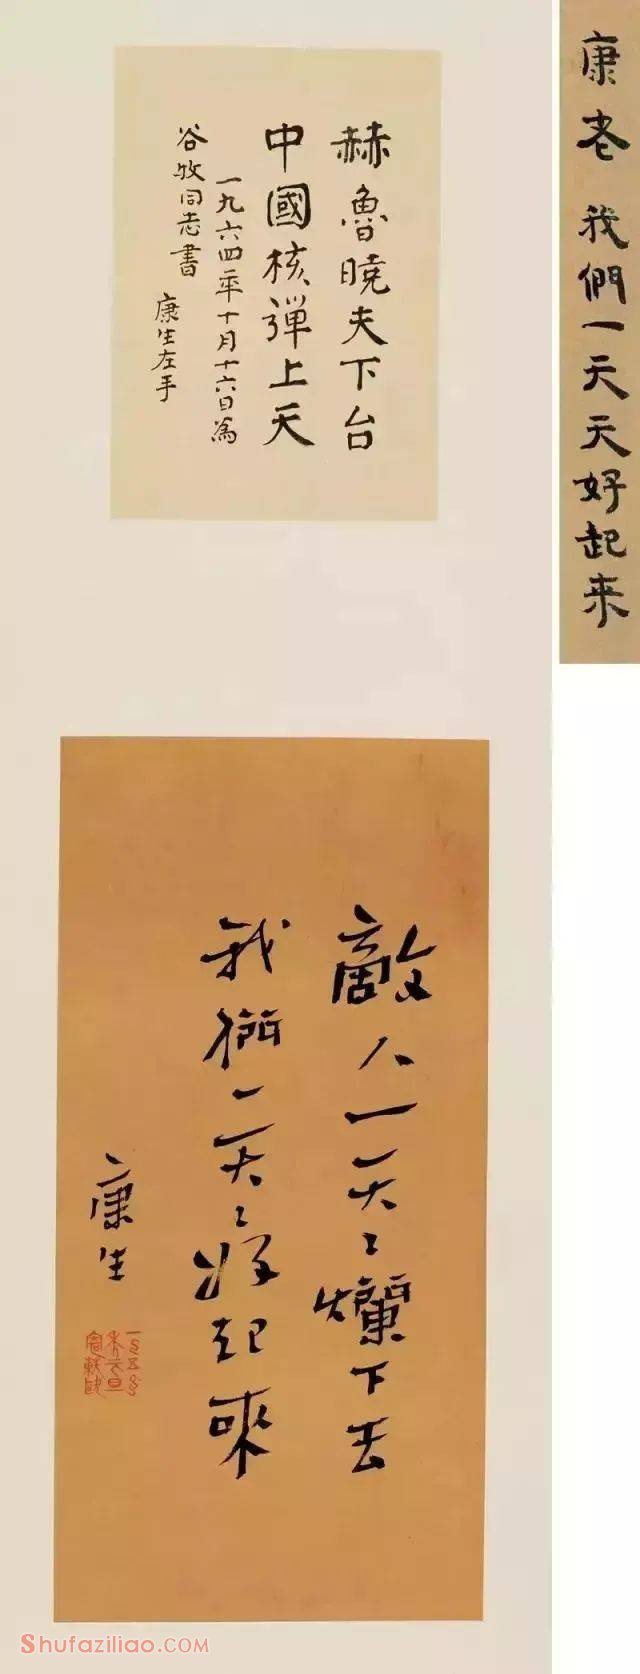 康老 我們一天天好起来
赫魯曉夫下台
中國核弹上天
一九六四年十月十六日為
谷牧同志書
康生左手
敵人一天〻爛下去
我們一天〻好起來
康生
Shufaziliao.COM